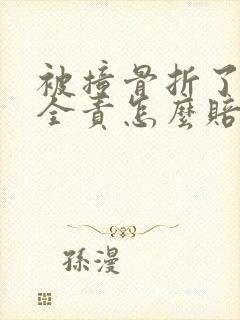 被撞骨折了
全責怎麼賠
孫漫